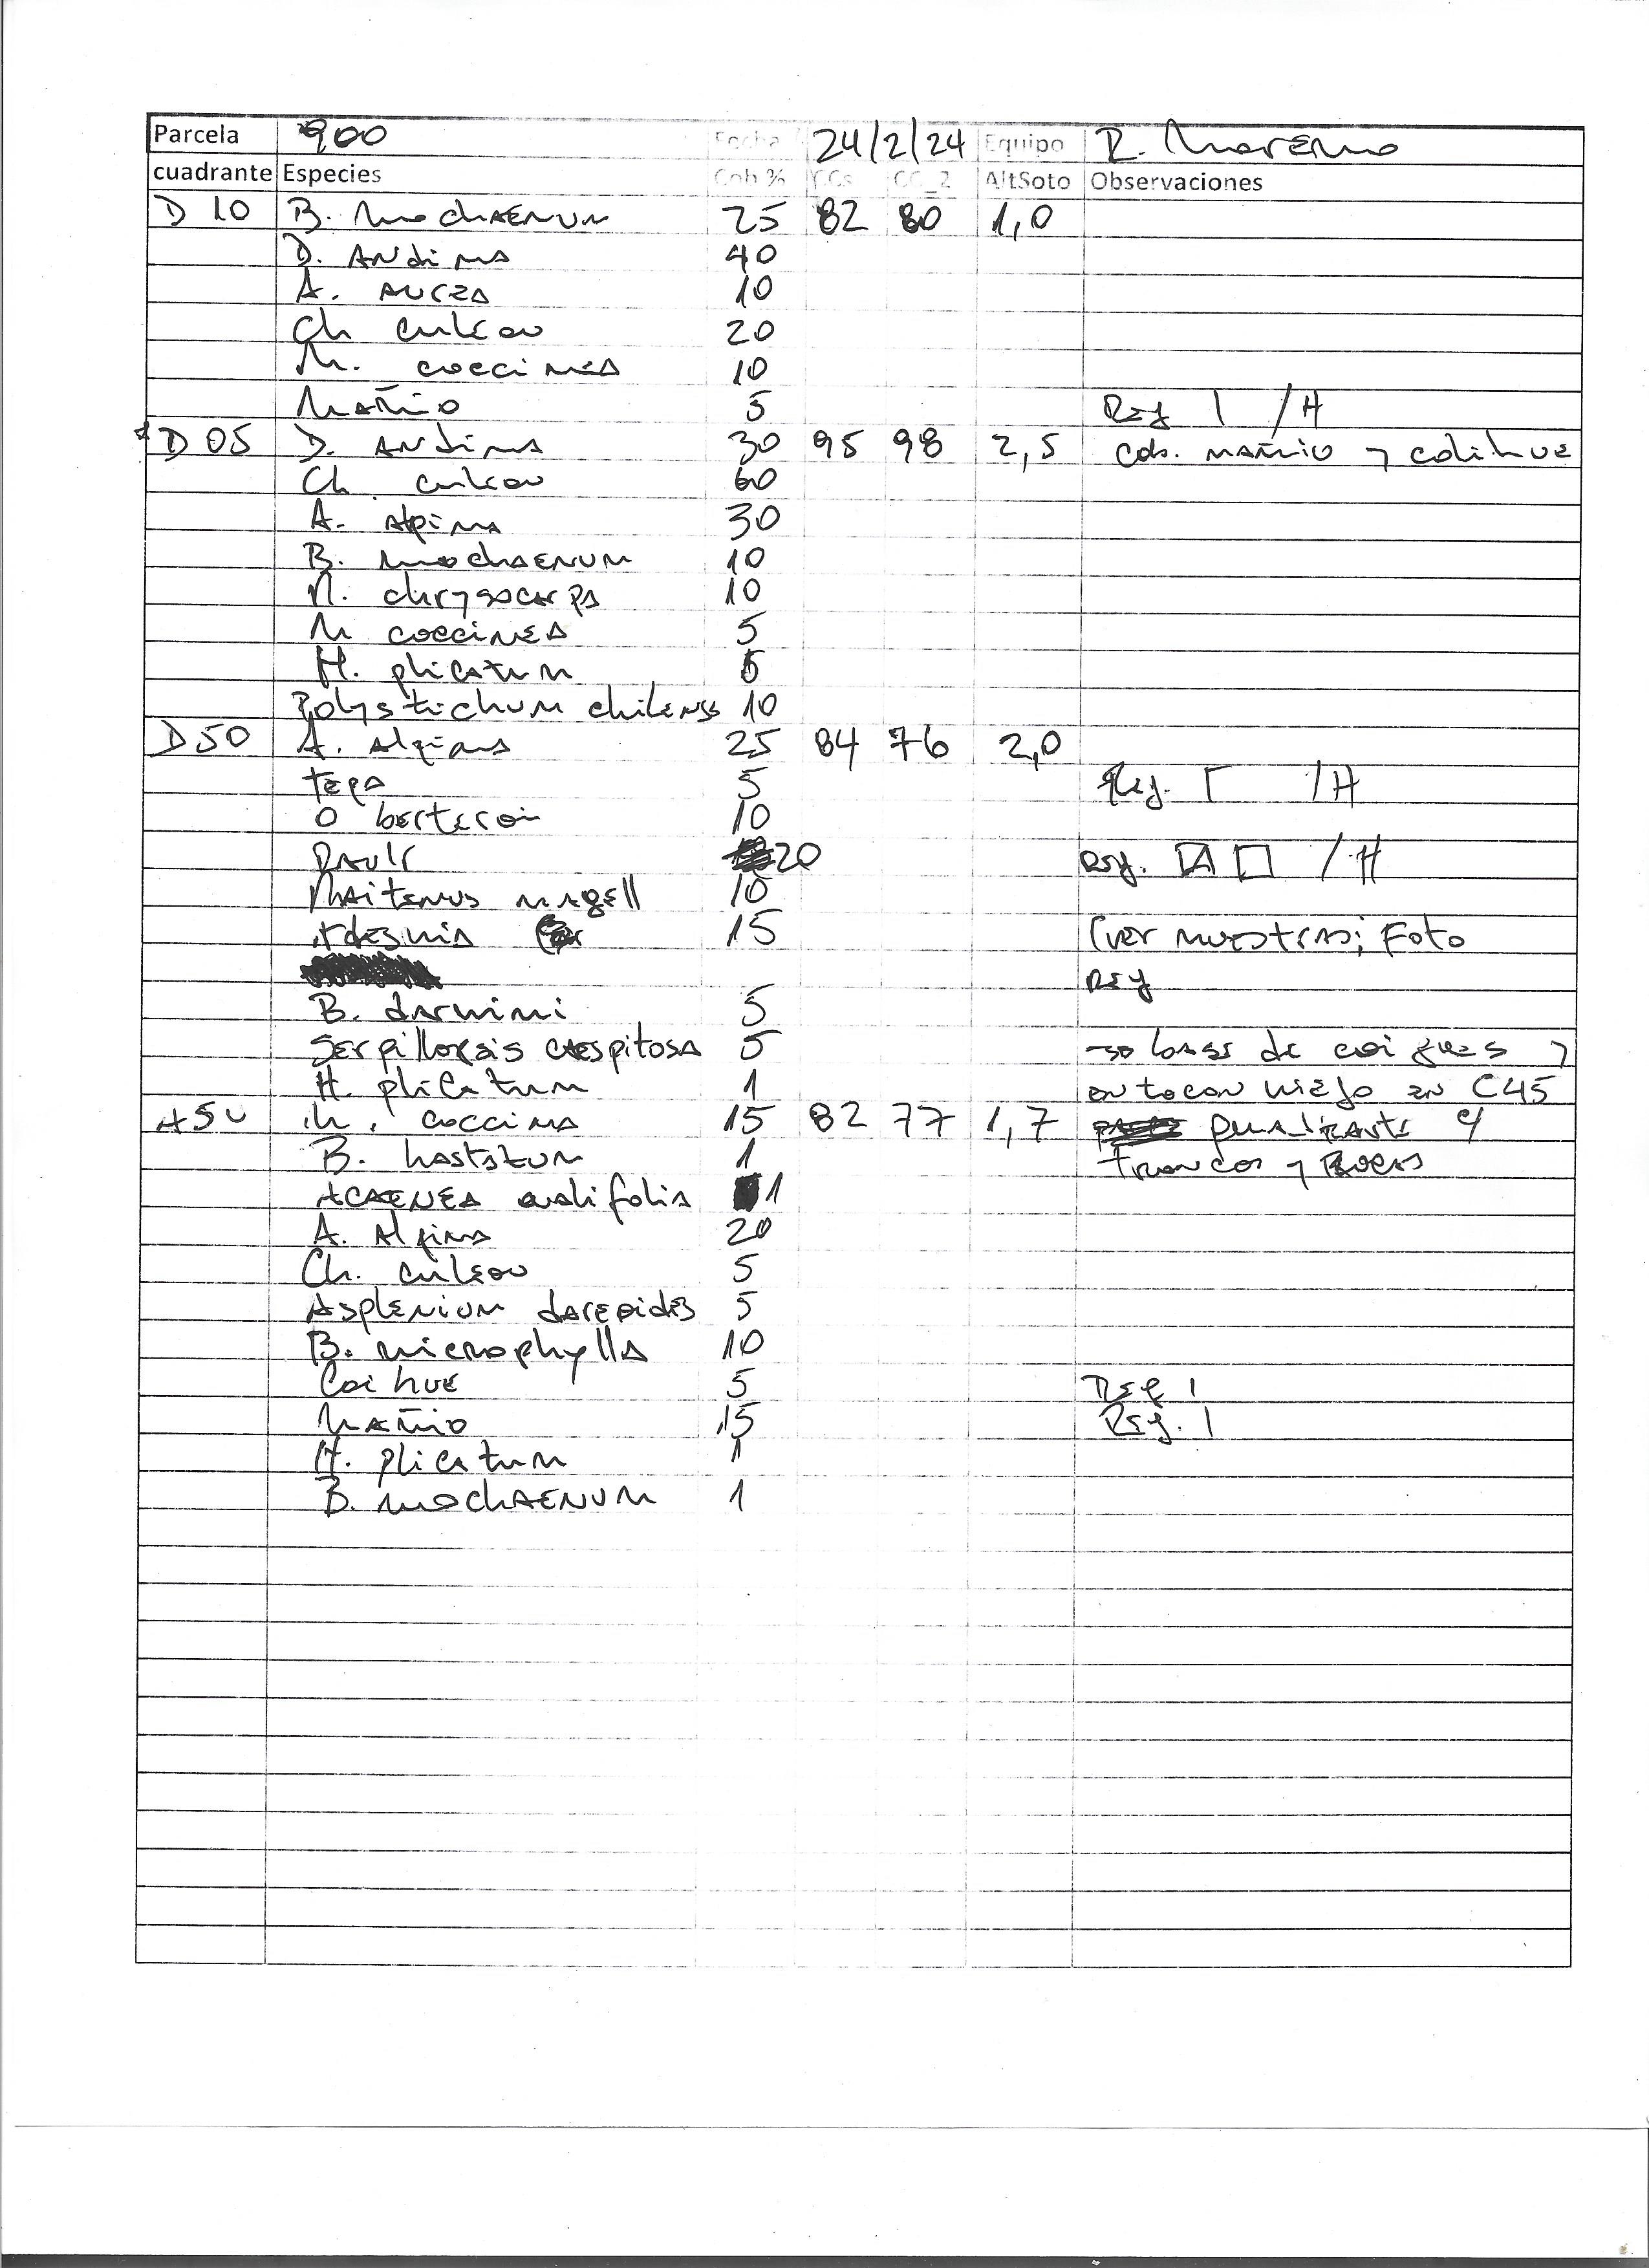 Parcela 900 Fecha 24/2/24 Equipo R. Moreno
cuadrante Especies Cob % CCs CC_2 AltSoto Observaciones
D 10 B. mochaenum 25 82 80 1,0
D. Andina 40
A. aurea 10
Ch culeou 20
M. coccinea 10
Mañio 5 Reg | /H
D 05 D. Andina 30 95 98 2,5 Cob. mañio y colihue
Ch. culeou 60
A. alpina 30
B. mochaenum 10
M. chrysocarpa 10
M coccinea 5
H. plicatum 5
Polystichum chilense 10
D 50 A. alpina 25 84 76 2,0
Tepa 5 Reg. /H
O berteroi 10
Rauli 20 Reg. /H
Maitenus magell 10
Adesmia 15 (ver muestras; Foto
Reg
B. darwini 5
Serpillopsis caespitosa 5 base de coigues y
H. plicatum 1 en tocon viejo en C45
A50 M. coccinea 15 82 77 1,7 c/
B. hastatum 1 troncos y
Acaenea ovalifolia 1
A. Alpina 20
Ch. culeou 5
Asplenium dareoides 5
B. microphylla 10
Coihue 5 Reg |
Mañio 15 Reg. |
H. plicatum 1
B. mochaenum 1